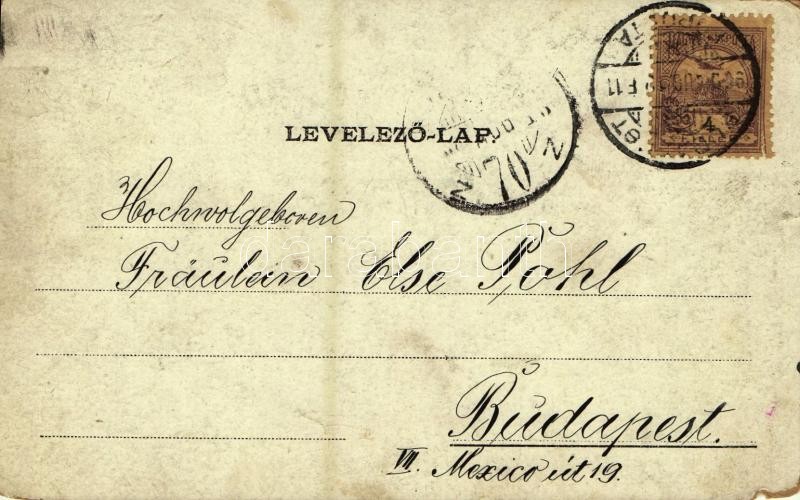 LEVELEZŐ-LAP.
70
4
Hochwolgeboren
Fräulein Else Pohl
Budapest.
VII. Mexico út 19.
darabanth